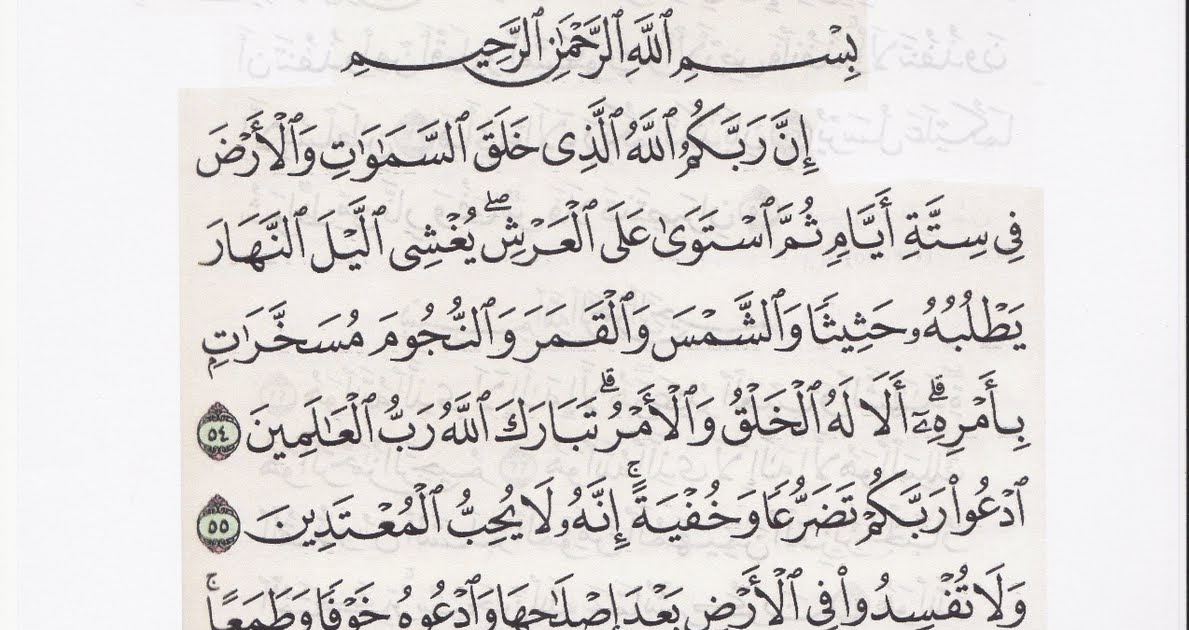 بِسْمِ ٱللَّهِ ٱلرَّحْمَٰنِ ٱلرَّحِيمِ
إِنَّ رَبَّكُمُ ٱللَّهُ ٱلَّذِى خَلَقَ ٱلسَّمَٰوَٰتِ وَٱلْأَرْضَ
فِى سِتَّةِ أَيَّامٍ ثُمَّ ٱسْتَوَىٰ عَلَى ٱلْعَرْشِۖ يُغْشِى ٱلَّيْلَ ٱلنَّهَارَ
يَطْلُبُهُۥ حَثِيثًا وَٱلشَّمْسَ وَٱلْقَمَرَ وَٱلنُّجُومَ مُسَخَّرَٰتٍۭ
بِأَمْرِهِۦٓۗ أَلَا لَهُ ٱلْخَلْقُ وَٱلْأَمْرُۗ تَبَارَكَ ٱللَّهُ رَبُّ ٱلْعَٰلَمِينَ ٥٤
ٱدْعُوا۟ رَبَّكُمْ تَضَرُّعًا وَخُفْيَةًۚ إِنَّهُۥ لَا يُحِبُّ ٱلْمُعْتَدِينَ ٥٥
وَلَا تُفْسِدُوا۟ فِى ٱلْأَرْضِ بَعْدَ إِصْلَٰحِهَا وَٱدْعُوهُ خَوْفًا وَطَمَعًاۚ